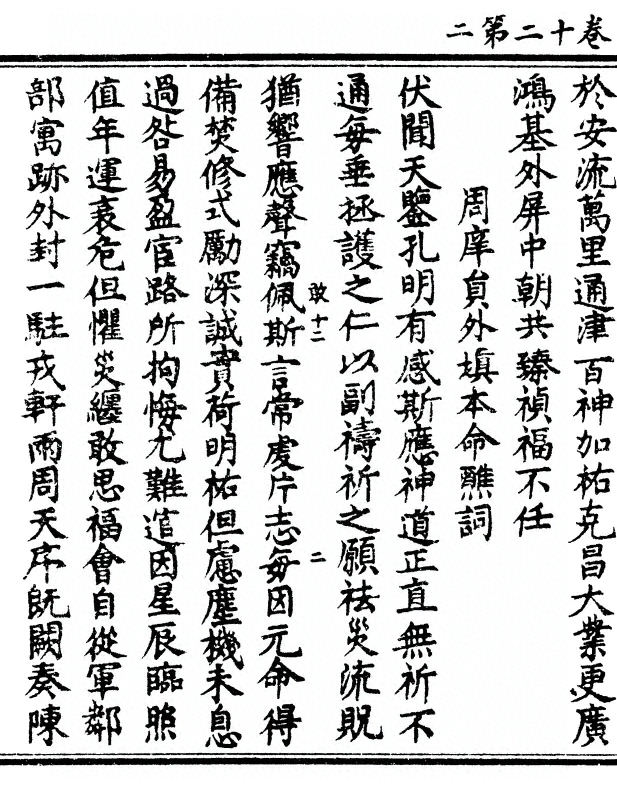 卷十二第二
於安流萬里通津百神加祐克昌大業更廣
鴻基外屏中朝共臻禎福不任
周庠員外填本命醮詞
伏聞天鑒孔明有感斯應神道正直無祈不
通每垂拯護之仁以副禱祈之願祛災流貺
猶響應聲竊佩斯言常虔片志每因元命得
敢十二
二
備焚修式勵深誠實荷明祐但慮塵機未息
過咎易盈官路所拘悔尤難逭因星辰臨照
值年運衰危但懼災纏敢思福會自從軍鄰
部寓跡外封一駐戎軒兩周天序既闕奏陳